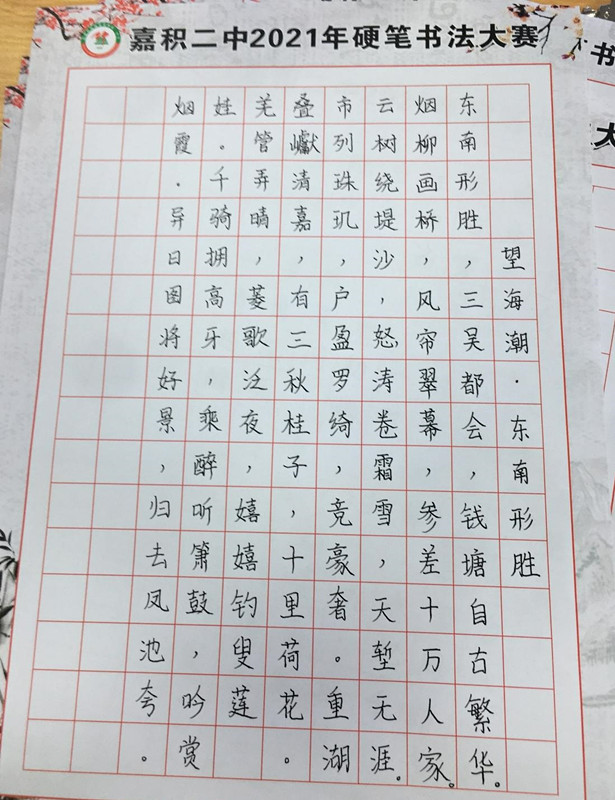 嘉积二中2021年硬笔书法大赛
望海潮·东南形胜
东南形胜，三吴都会，钱塘自古繁华。
烟柳画桥，风帘翠幕，参差十万人家。
云树绕堤沙，怒涛卷霜雪，天堑无涯。
市列珠玑，户盈罗绮，竞豪奢。重湖
叠巘清嘉，有三秋桂子，十里荷花。
羌管弄晴，菱歌泛夜，嬉嬉钓叟莲
娃。千骑拥高牙，乘醉听箫鼓，吟赏
烟霞.异日图将好景，归去凤池夸。
书
大